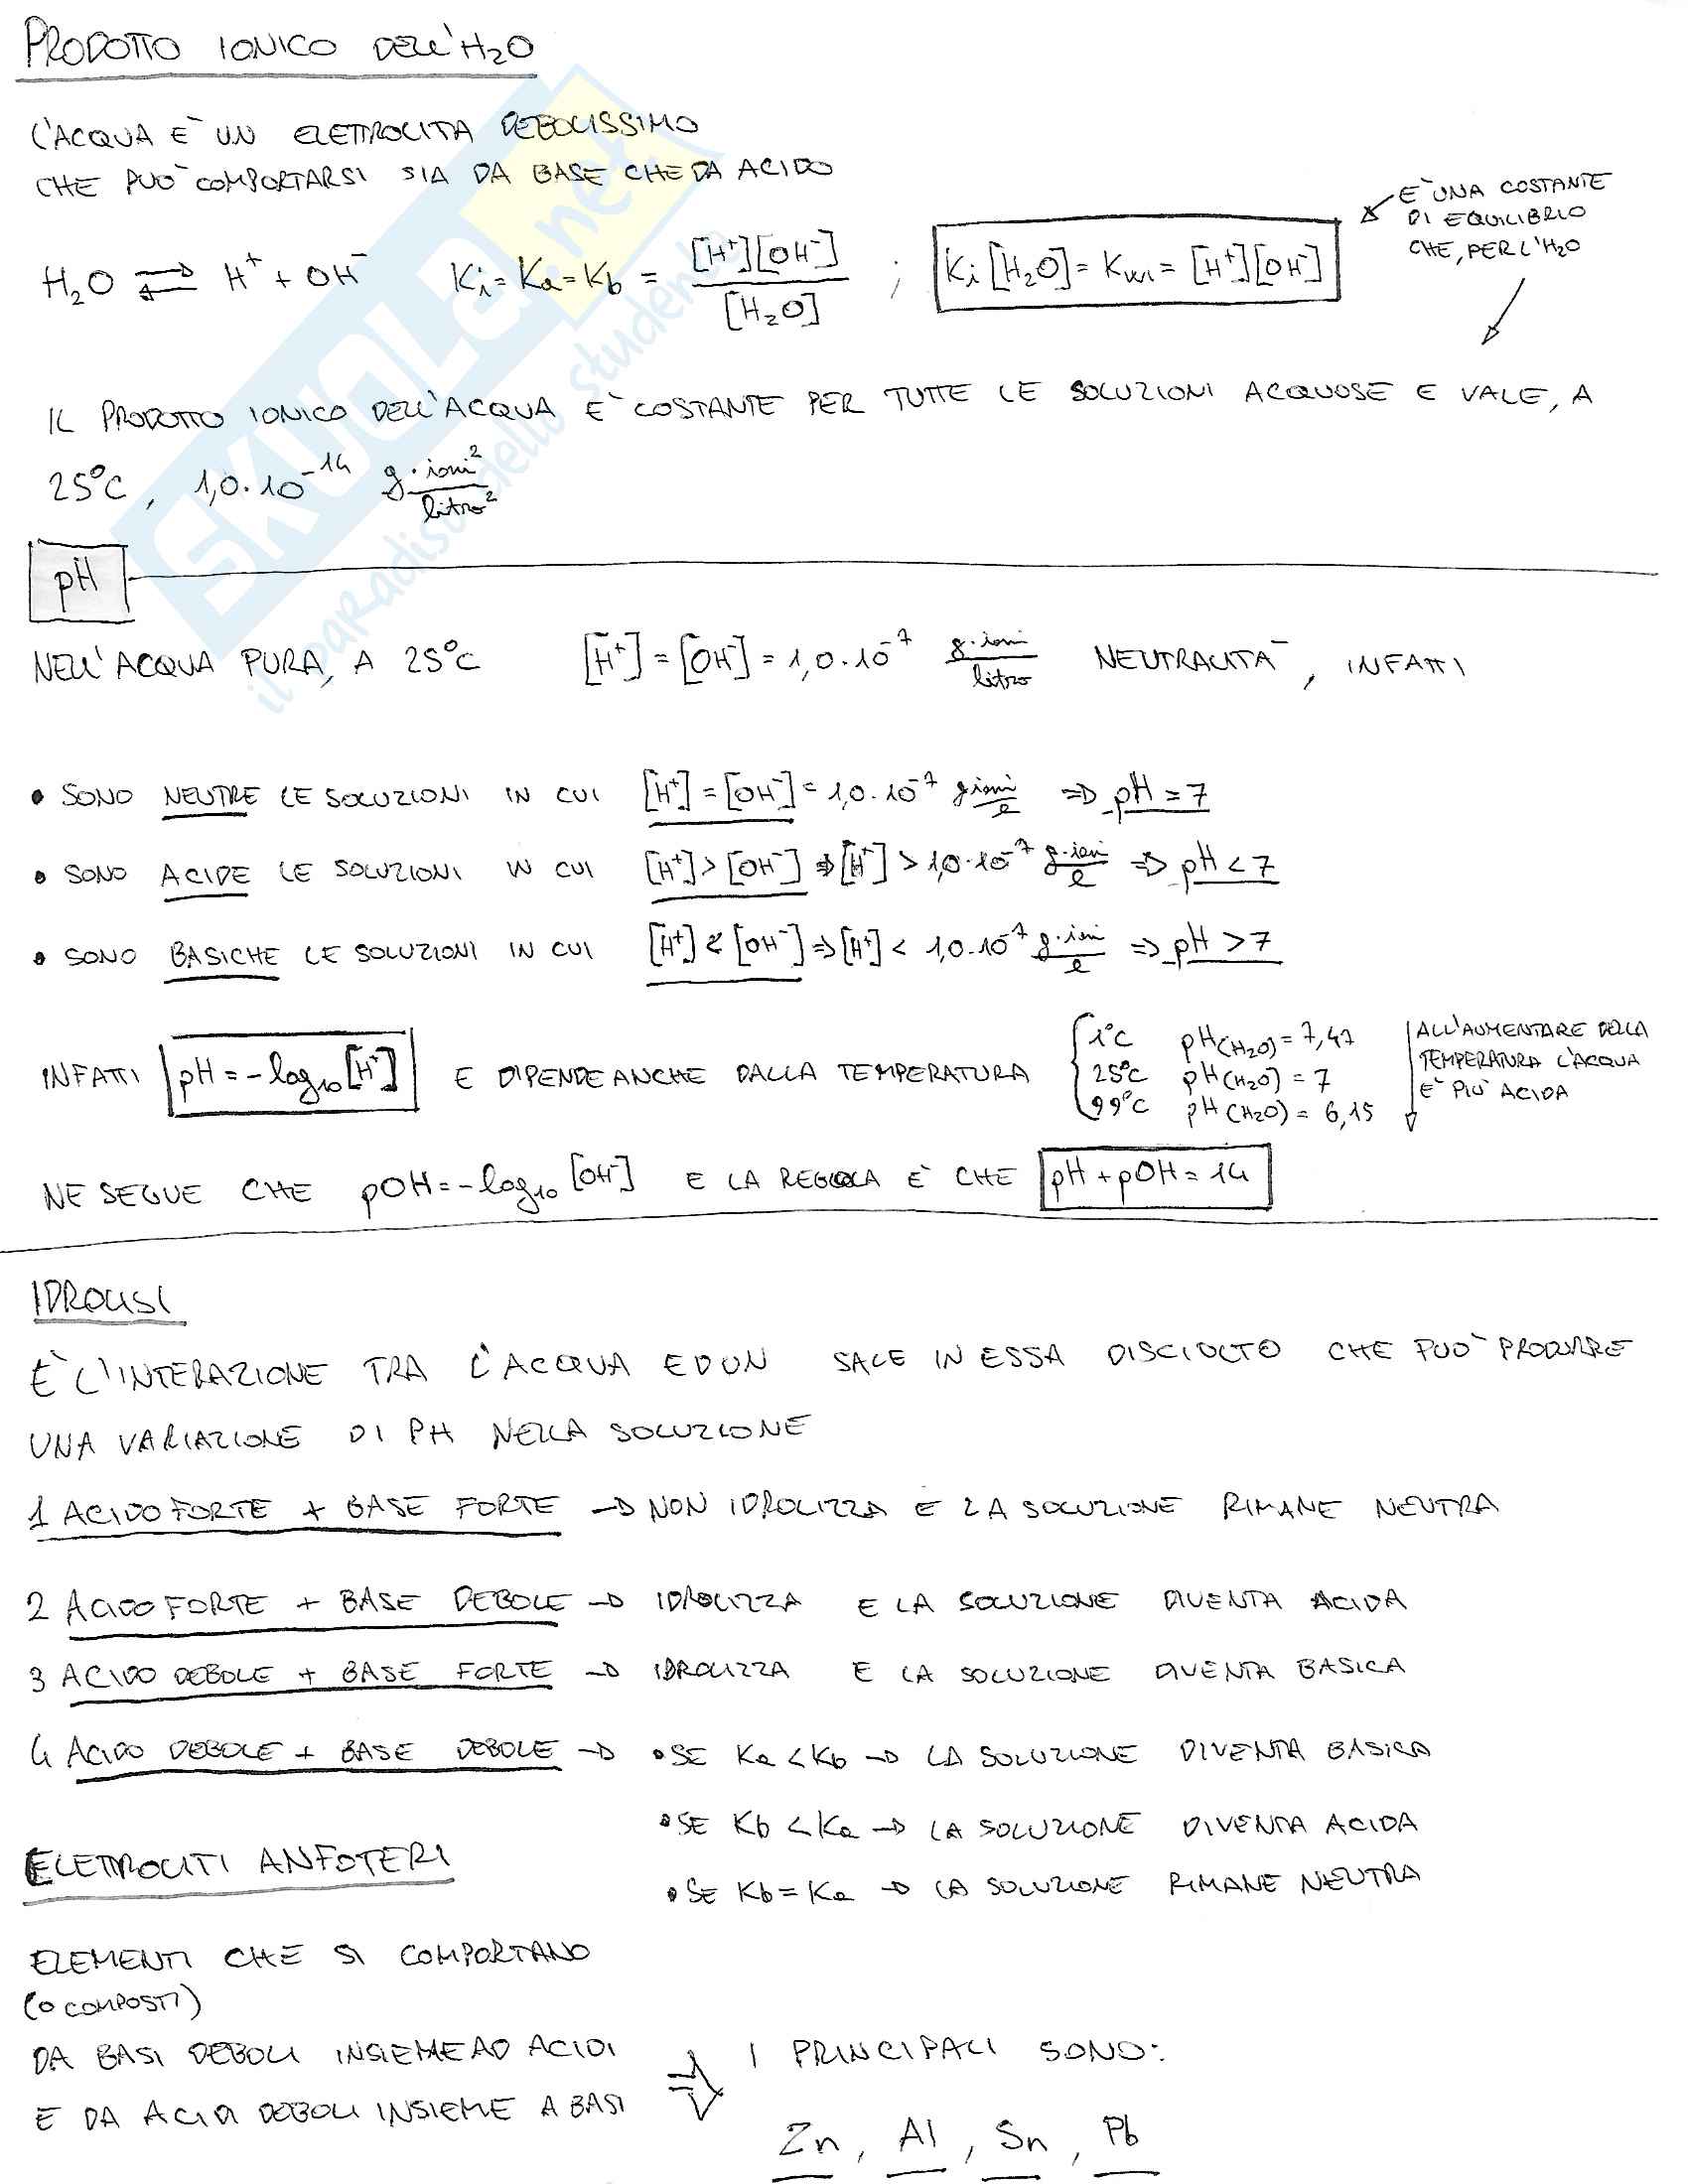 PRODOTTO IONICO DELL'H₂O
L'ACQUA È UN ELETTROLITA DEBOLISSIMO
CHE PUÒ COMPORTARSI SIA DA BASE CHE DA ACIDO
H₂O ⇌ H⁺ + OH⁻ Ki = Ka = Kb = [H⁺][OH⁻] / [H₂O] ; Ki [H₂O] = Kw = [H⁺][OH⁻]
È UNA COSTANTE
DI EQUILIBRIO
CHE, PER L'H₂O
IL PRODOTTO IONICO DELL'ACQUA È COSTANTE PER TUTTE LE SOLUZIONI ACQUOSE E VALE, A
25°C, 1,0·10⁻¹⁴ g·ioni² / litro²
pH
NELL'ACQUA PURA, A 25°C [H⁺] = [OH⁻] = 1,0·10⁻⁷ g·ioni / litro NEUTRALITÀ, INFATTI
• SONO NEUTRE LE SOLUZIONI IN CUI [H⁺] = [OH⁻] = 1,0·10⁻⁷ g ioni / l ⇒ pH = 7
• SONO ACIDE LE SOLUZIONI IN CUI [H⁺] > [OH⁻] ⇒ [H⁺] > 1,0·10⁻⁷ g·ioni / l ⇒ pH < 7
• SONO BASICHE LE SOLUZIONI IN CUI [H⁺] < [OH⁻] ⇒ [H⁺] < 1,0·10⁻⁷ g·ioni / l ⇒ pH > 7
INFATTI pH = -log₁₀ [H⁺] E DIPENDE ANCHE DALLA TEMPERATURA
1°C pH(H₂O) = 7,47
25°C pH(H₂O) = 7
99°C pH(H₂O) = 6,15
ALL'AUMENTARE DELLA
TEMPERATURA L'ACQUA
È PIÙ ACIDA
NE SEGUE CHE pOH = -log₁₀ [OH⁻] E LA REGOLA È CHE pH + pOH = 14
IDROLISI
È L'INTERAZIONE TRA L'ACQUA ED UN SALE IN ESSA DISCIOLTO CHE PUÒ PRODURRE
UNA VARIAZIONE DI PH NELLA SOLUZIONE
1 ACIDO FORTE + BASE FORTE → NON IDROLIZZA E LA SOLUZIONE RIMANE NEUTRA
2 ACIDO FORTE + BASE DEBOLE → IDROLIZZA E LA SOLUZIONE DIVENTA ACIDA
3 ACIDO DEBOLE + BASE FORTE → IDROLIZZA E LA SOLUZIONE DIVENTA BASICA
4 ACIDO DEBOLE + BASE DEBOLE → • SE Ka < Kb → LA SOLUZIONE DIVENTA BASICA
• SE Kb < Ka → LA SOLUZIONE DIVENTA ACIDA
• SE Kb = Ka → LA SOLUZIONE RIMANE NEUTRA
ELETTROLITI ANFOTERI
ELEMENTI CHE SI COMPORTANO
(O COMPOSTI)
DA BASI DEBOLI INSIEME AD ACIDI
E DA ACIDI DEBOLI INSIEME A BASI
⇒ I PRINCIPALI SONO:
Zn, Al, Sn, Pb
SKUOLA.net
il paradiso dello studente